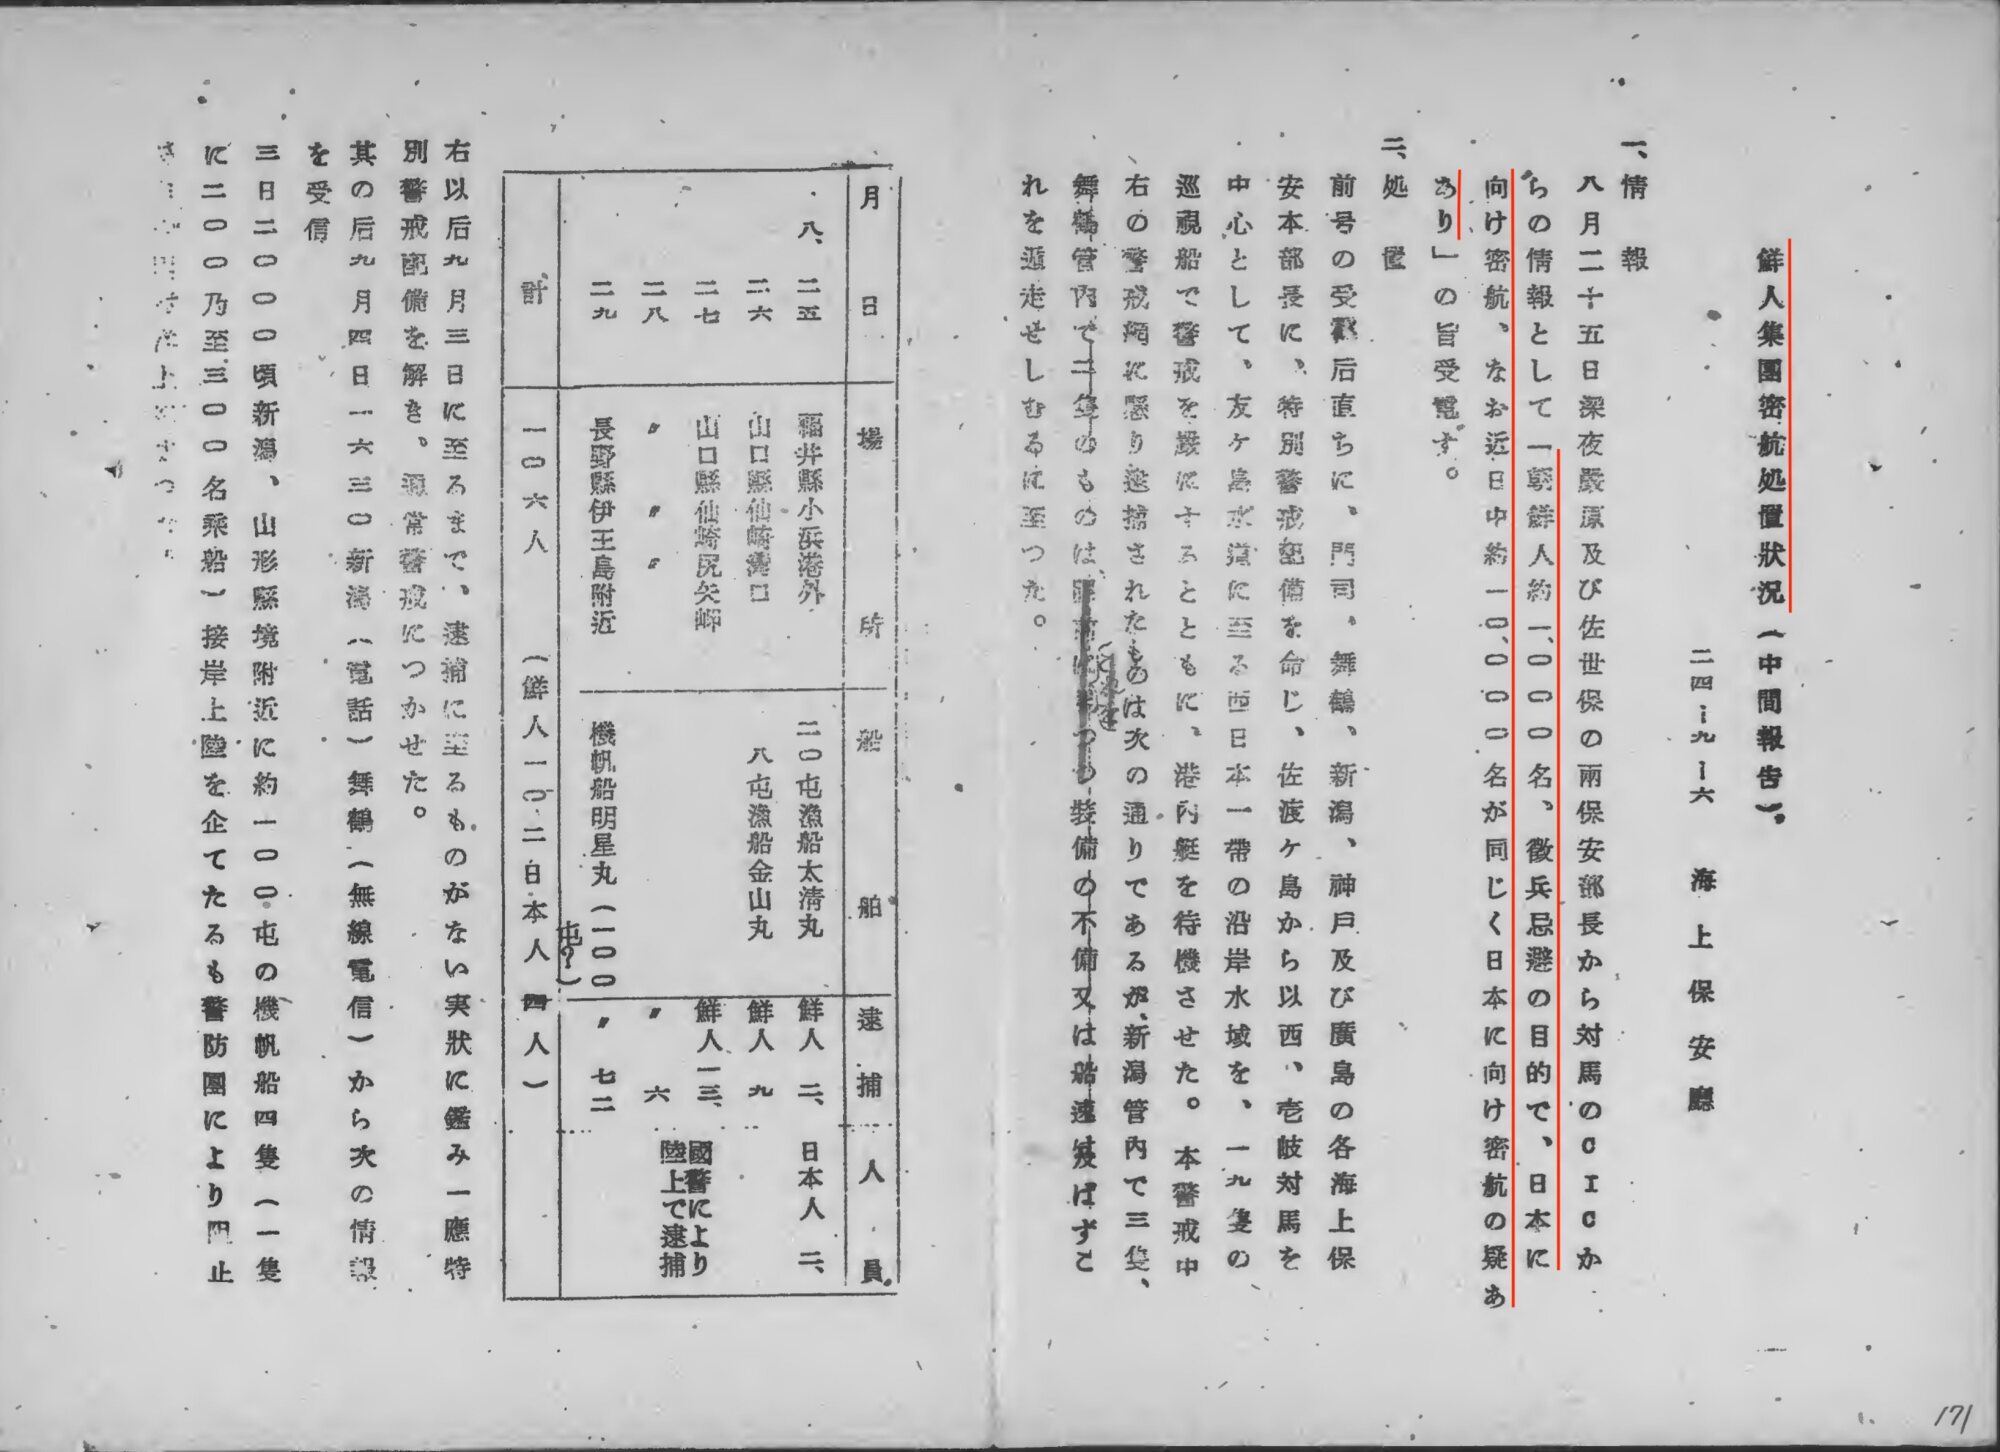 鮮人集團密航処置狀況(中間報告)。
二四―九―六 海上保安廳
一、情報
八月二十五日深夜嚴原及び佐世保の兩保安部長から対馬のCICか
らの情報として「朝鮮人約一、〇〇〇名、徵兵忌避の目的で、日本に
向け密航、なお近日中約一〇、〇〇〇名が同じく日本に向け密航の疑あ
あり」の旨受電す。
二、処置
前号の受電后直ちに、門司、舞鶴、新潟、神戸及び廣島の各海上保
安本部長に、特別警戒配備を命じ、佐渡ヶ島から以西、壱岐対馬を
中心として、友ヶ島水道に至る西日本一帶の沿岸水域を、一九隻の
巡視船で警戒を嚴にするとともに、港内艇を待機させた。本警戒中
右の警戒網に懸り逮捕されたものは次の通りであるが、新潟管内で三隻、
舞鶴管内で二隻のものは つつ装備の不備又は船速及ばずこ
これを
れを遁走せしむるに至つた。
月日 場所 船舶 逮捕人員
八、二五 福井縣小浜港外 二〇屯漁船太清丸 鮮人 二、日本人 二、
二六 山口縣仙崎湾口 八屯漁船金山丸 鮮人 九
二七 山口縣仙崎尻矢岬 鮮人一三、國警により
二八 〃 〃 〃 〃 六 陸上で逮捕
二九 長野縣伊王島附近 機帆船明星丸(一〇〇屯?) 〃 七二
計 一〇六人 (鮮人一〇二日本人四人)
右以后九月三日に至るまで、逮捕に至るものがない実狀に鑑み一應特
別警戒配備を解き、通常警戒につかせた。
其の后九月四日一六三〇新潟(電話)舞鶴(無線電信)から次の情報
を受信
三日二〇〇〇頃新潟、山形縣境附近に約一〇〇屯の機帆船四隻(一隻
に二〇〇乃至三〇〇名乘船)接岸上陸を企てたるも警防團により阻止
171